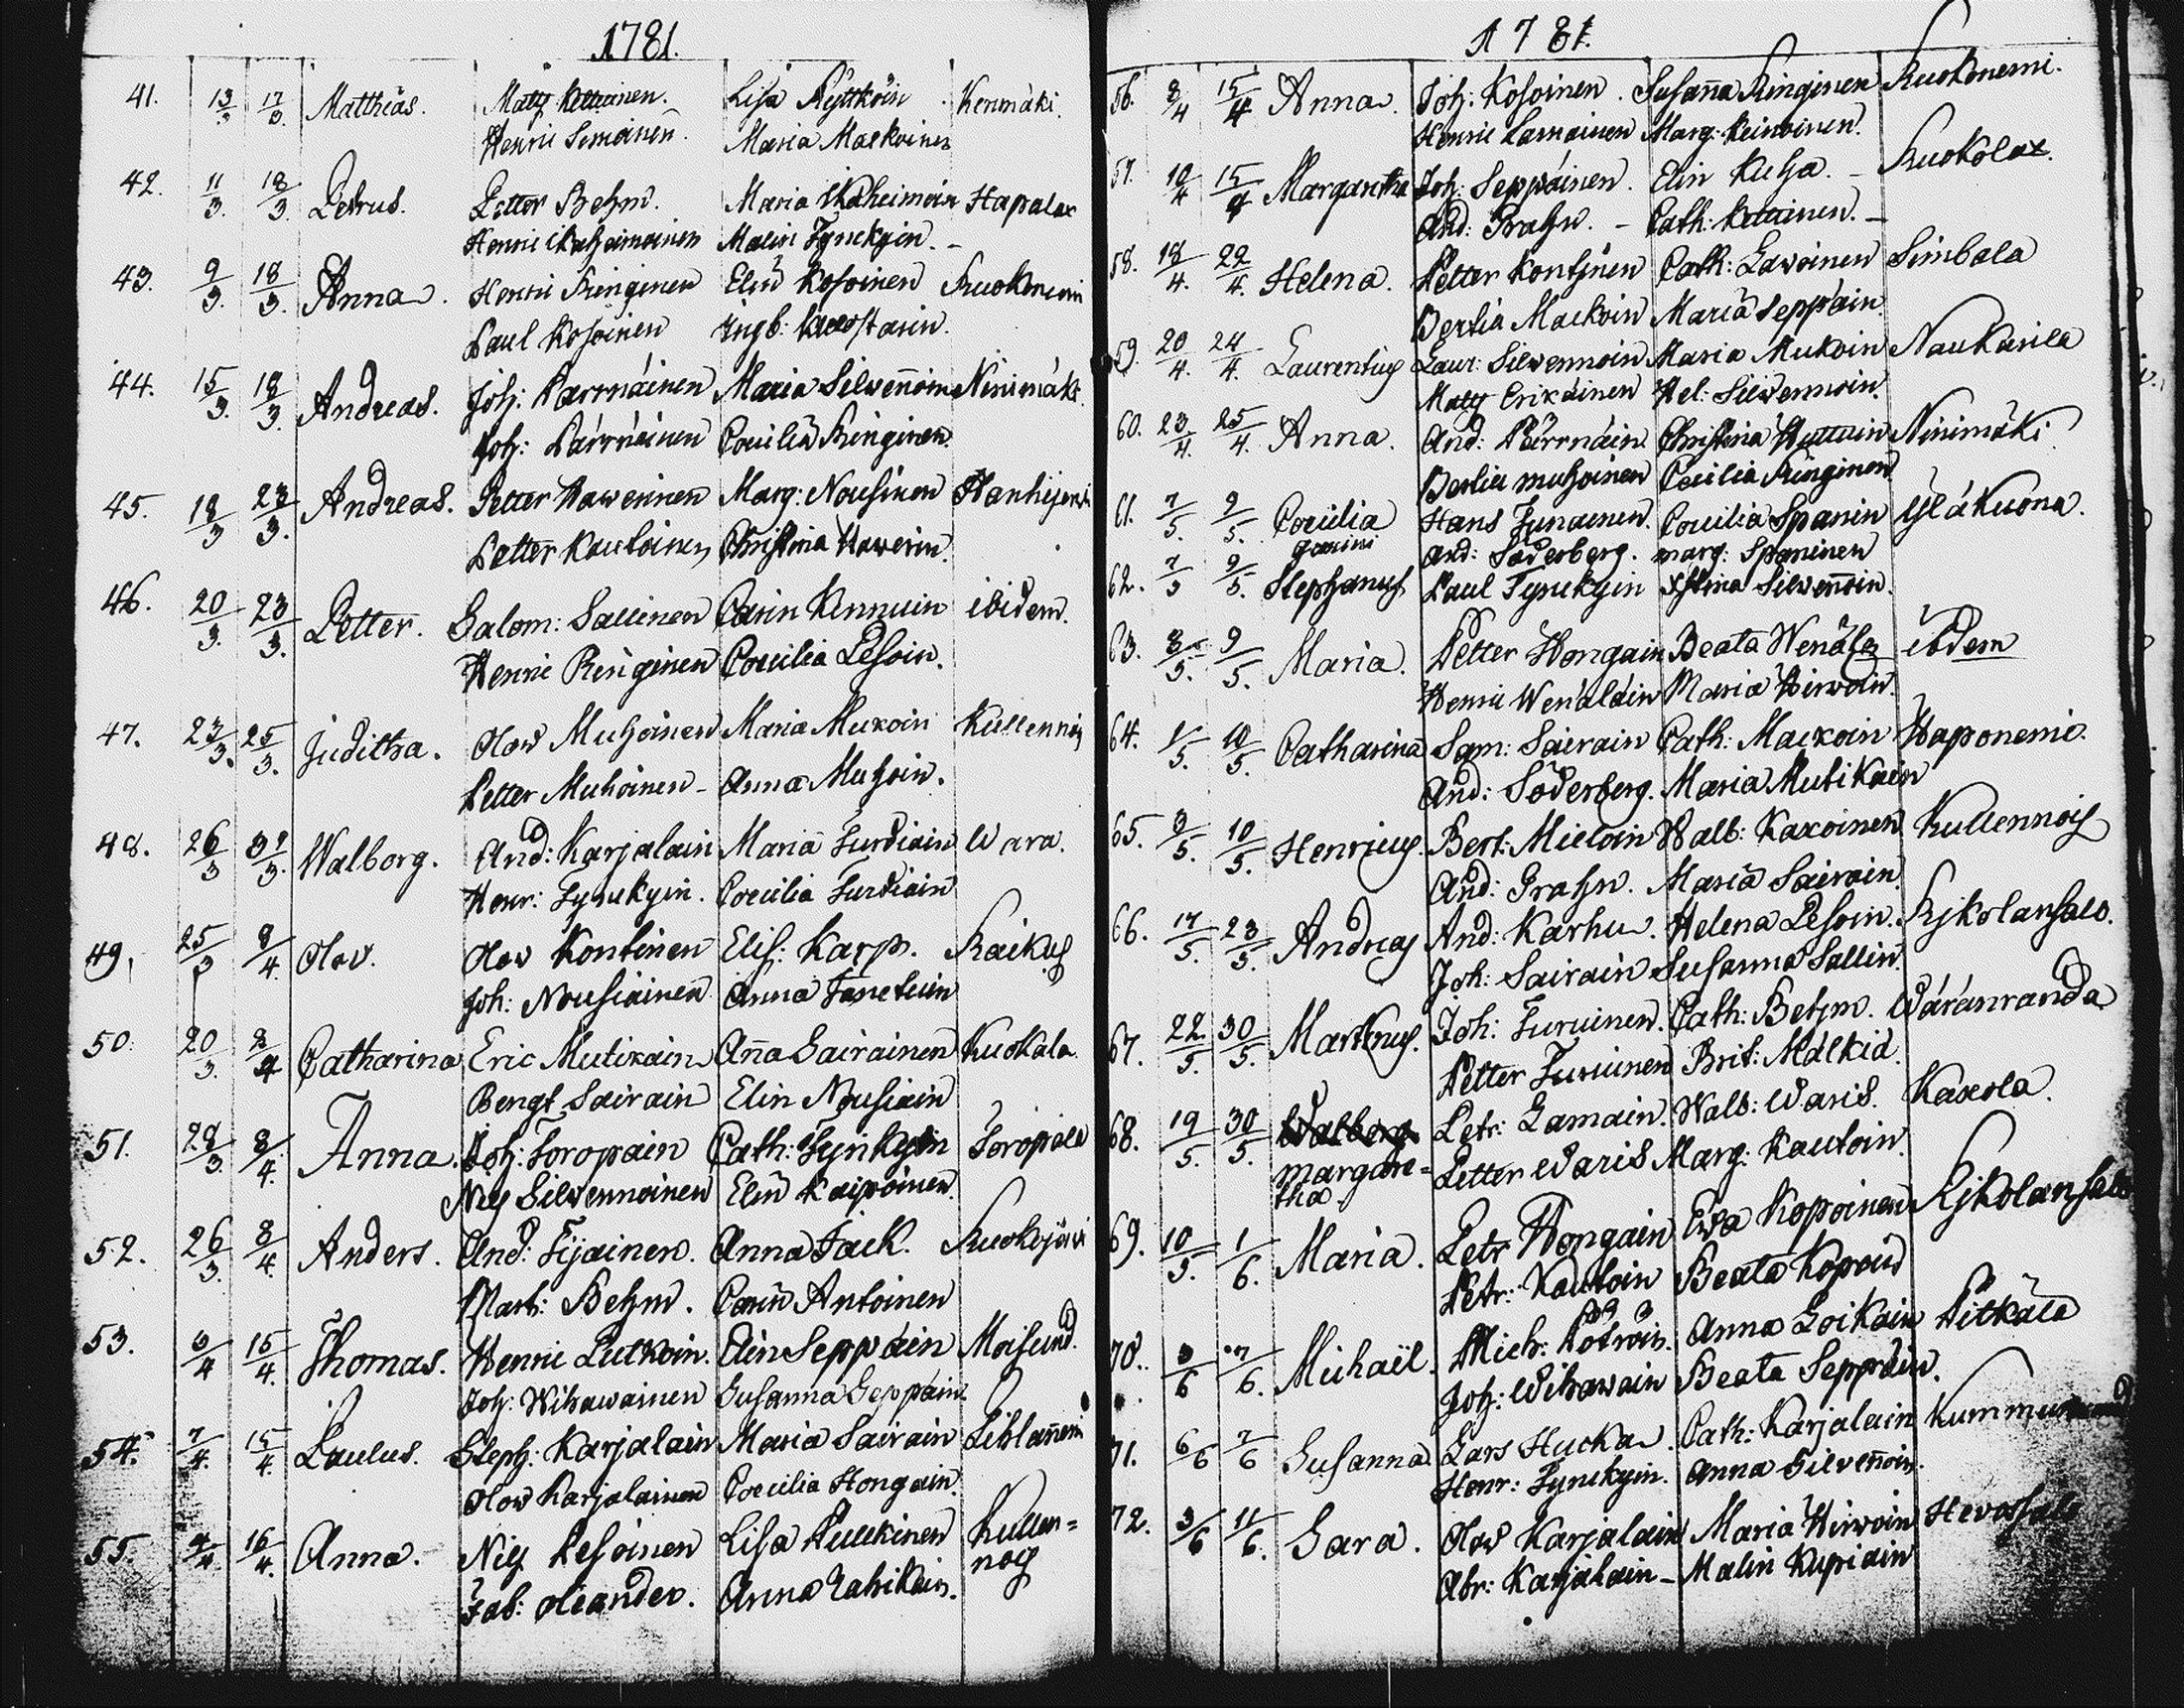 1781.
41. 13/3 17/3. Matthias. Matts Kettuinen. Lisa Nyttköin. Kenmäki.
Henric Simoinen. Maria Mackoinen
42. 11/3. 18/3. Petrus. Petter Behm. Maria Ikäheimoin Hapalax
Henric Ikäheimoinen Malin Tynckyin.
43. 9/3. 18/3. Anna. Henric Ringinen Elin Kosoinen Ruokoniemi
Paul Kosoinen Ingb:
44. 15/3. 18/3. Andreas. Joh: Pärrnäinen Maria Silvennoin Ninimäki.
Joh: Pärrnäinen Coecilia Ringinen.
45. 18/3 23/3. Andreas. Petter Haweninen Marg: Nousinen Hanhijervi
Petter Kautoinen Christina Hawerin.
46. 20/3. 23/3. Petter. Salom: Sallinen Carin Kinnuin ibidem.
Henric Ringinen Coecilia Pesoin.
47. 23/3. 25/3. Juditha. Olov Muhoinen Maria Muxoin Kullennois
Petter Muhoinen - Anna Muhoin.
48. 26/3 31/3. Walborg. And: Karjalain Maria Turdiain Wara.
Henr: Tynckyin. Coecilia Turdiain
49. 25/3 8/4 Olov. Olov Kontinen Elis: Karp. Raikus
Joh: Nousiainen Anna Tanetuin
50. 20/3. 8/4 Catharina Eric Mutikain Anna Sairainen Kuokala
Bengt Sairain Elin Nousiain
51. 28/3 8/4. Anna. Joh: Toropain Cath: Tynkyin Toropala
Nils Silvennoinen Elin Kaipoinen.
52. 26/3. 8/4. Anders. And: Tijainen. Anna Tack. Ruokojärvi
Mart: Behm. Carin Antoinen
53. 15/4. Thomas. Henric Lutkoin. Elin Seppäin Moisund.
Joh: Wihawainen Susanna Seppäin.
54. 7/4. 15/4. Paulus. Steph: Karjalain Maria Sairain Lihlanemi
Olov Karjalainen Coecilia Hongain.
55. 4/4 16/4. Anna. Nils Pesoinen Lisa Pulckinen Kullen=
nois
Jab: Oleander. Anna Lahikain.
1781.
56. 8/4 15/4 Anna. Joh: Kosoinen. Susanna Ringinen Ruokonemi.
Henric Lamainen Marg: Keinoinen.
57. 10/4 15/4 Margaretha Joh: Seppäinen. Elin Kuhja. - Ruokolax.
And: Grahn. - Cath: Kettuinen. -
58. 18/4. 22/4. Helena. Petter Kontjnen Cath: Lavoinen Simbala
Bertia Mackoin Maria Seppäin.
59. 20/4. 24/4. Laurentius Laur: Silvennoin Maria Mukoin Naukarila
Matts Erikäinen Hel: Silvennoin.
60. 23/4. 25/4. Anna. And: Pärrnäin Christina Huttuin Ninimäki
Bertia muhoinen Coecilia Ringinen
61. 7/5. 9/5. Coecilia Hans Junainen. Coecilia Spanin Yläkuona.
gemini And: Söderberg. marg: Spaninen
62. 7/5 9/5. Stephanus Paul Tynckyin Xstina Silvennoin.
63. 8/5. 9/5. Maria. Petter Hongain Beata Wenäla ibidem
Henric Wenäläin Maria Hirvoin.
64. 1/5. 10/5. Catharina Sam: Sairain Cath: Mackoin Haponemi.
And: Söderberg. Maria Mutikain
65. 10/5. Henricus. Bert: Mieloin Walb: Kaxoinen Kullennois
And: Grahn. Maria Sairain.
66. 17/5. 23/5. Andreas And: Karhu. Helena Pesoin. Kjkolansalo.
Joh: Sairain Susanna Sallin.
67. 22/5. 30/5. Martinus. Joh: Turuinen. Cath: Behm. Wäränranda
Petter Turuinen Brit: Mälkiä.
68. 19/5. 30/5. Walborg Petr: Lamain. Walb: Waris. Kaxola.
margare= Petter Waris Marg: Kautoin.
tha
69. 10/5. 1/6. Maria. Petr Hongain Eva Kopoinen Kjkolansalo
Petr: Kautoin Beata Kopoin
70. 3/6 7/6. Michaël. Mich: Potroin. Anna Loikain Pitkälä
Joh: Wihawain Beata Seppäin.
71. 6/6 7/6 Susanna Lars Hucka. Cath: Karjalain
Henr: Tynckyin. Anna Silvennoin.
72. 3/6 11/6. Sara. Olov Karjalain Maria Hirvoin Hevossalo
Abr: Karjalain - Malin Kupiain